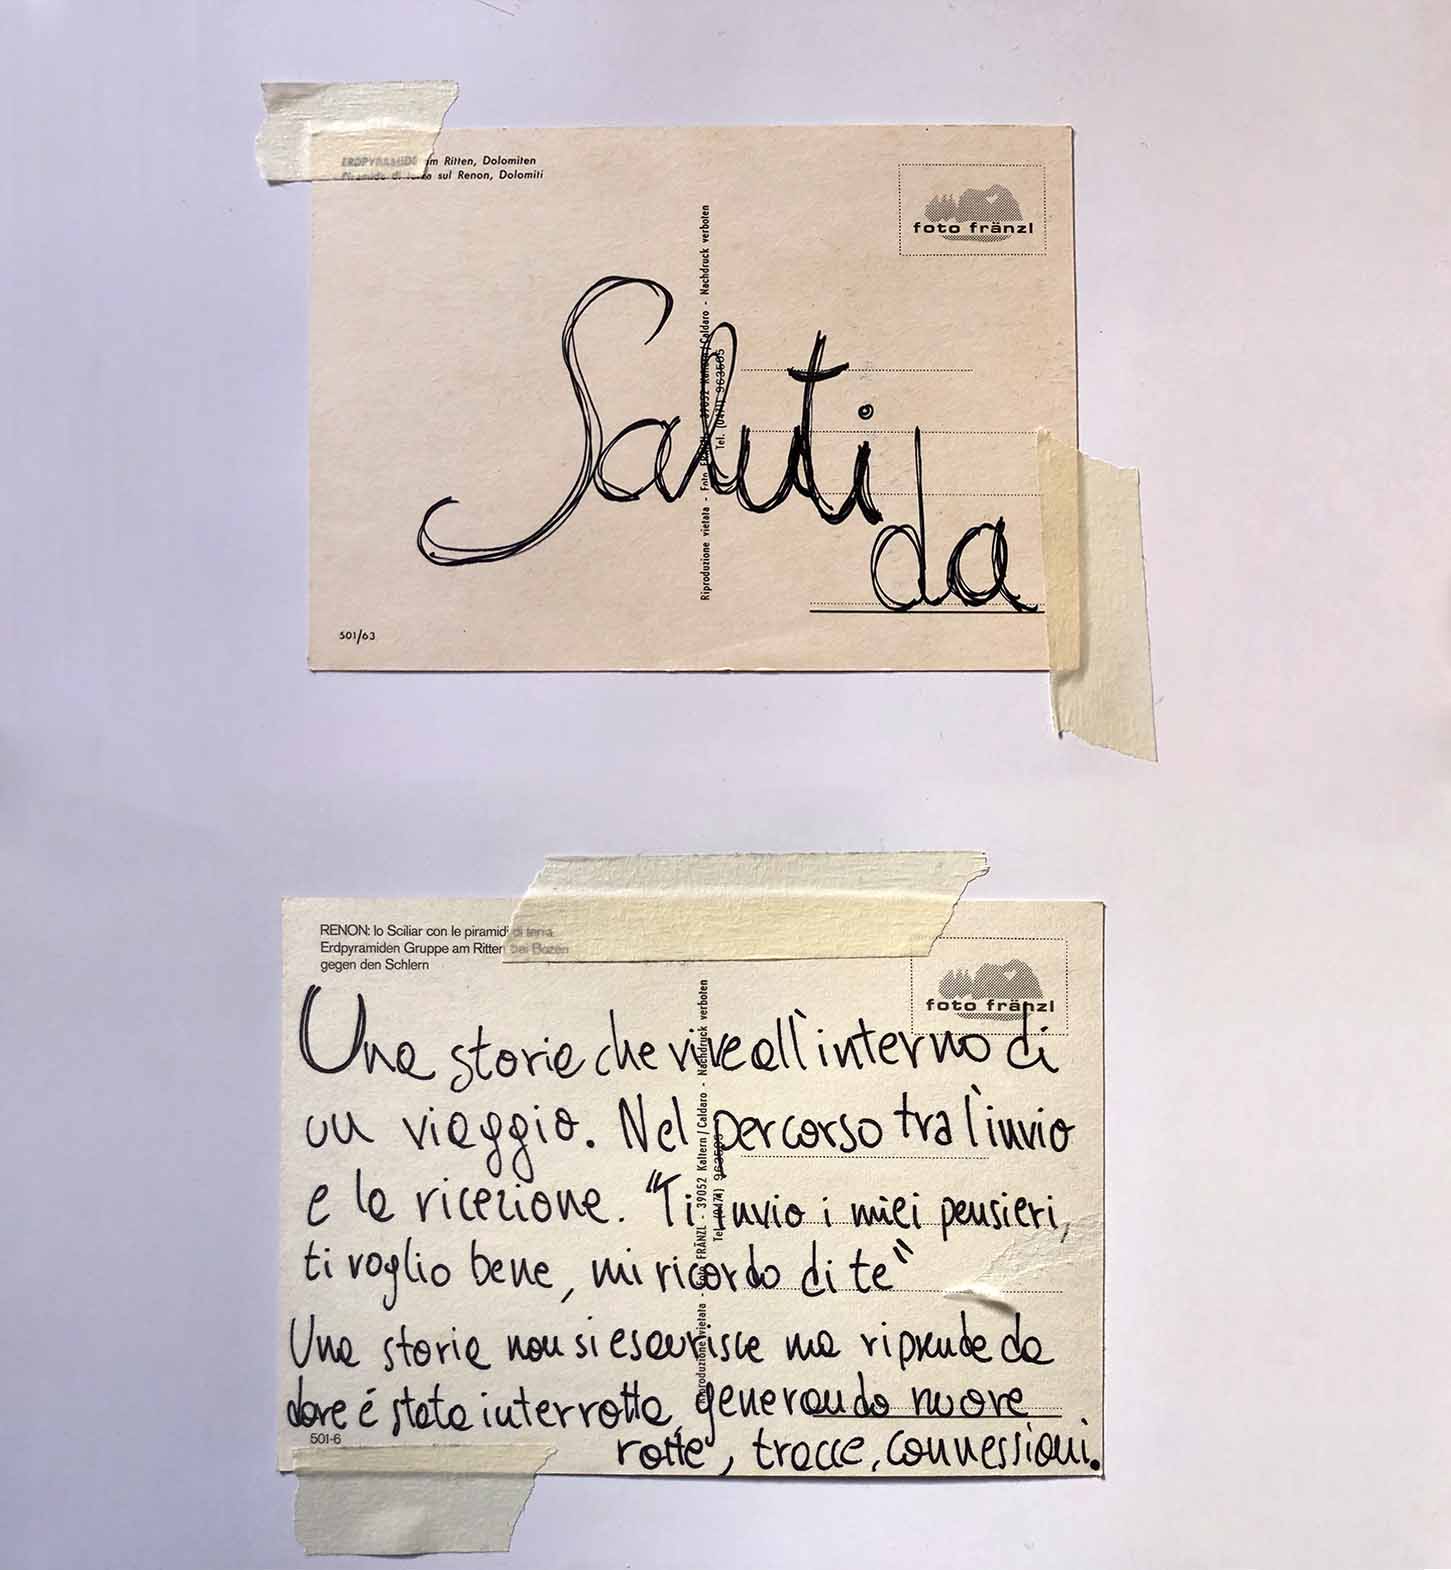 ERDPYRAMIDE am Ritten, Dolomiten
Piramide di terra sul Renon, Dolomiti
foto fränzl
Riproduzione vietata - Foto FRÄNZL - 39052 Kaltern/Caldaro - Nachdruck verboten
Tel. (0471) 963505
Saluti
da
501/63
RENON: lo Sciliar con le piramidi di terra
Erdpyramiden Gruppe am Ritten bei Bozen
gegen den Schlern
foto fränzl
Riproduzione vietata - Foto FRÄNZL - 39052 Kaltern/Caldaro - Nachdruck verboten
Tel. (0471) 963505
Una storia che vive all'interno di
un viaggio. Nel percorso tra l'invio
e la ricezione. "Ti invio i miei pensieri,
ti voglio bene, mi ricordo di te"
Una storia non si esaurisce ma riprende da
dove é stata interrotta, generando nuove
rotte, tracce, connessioni.
501-6